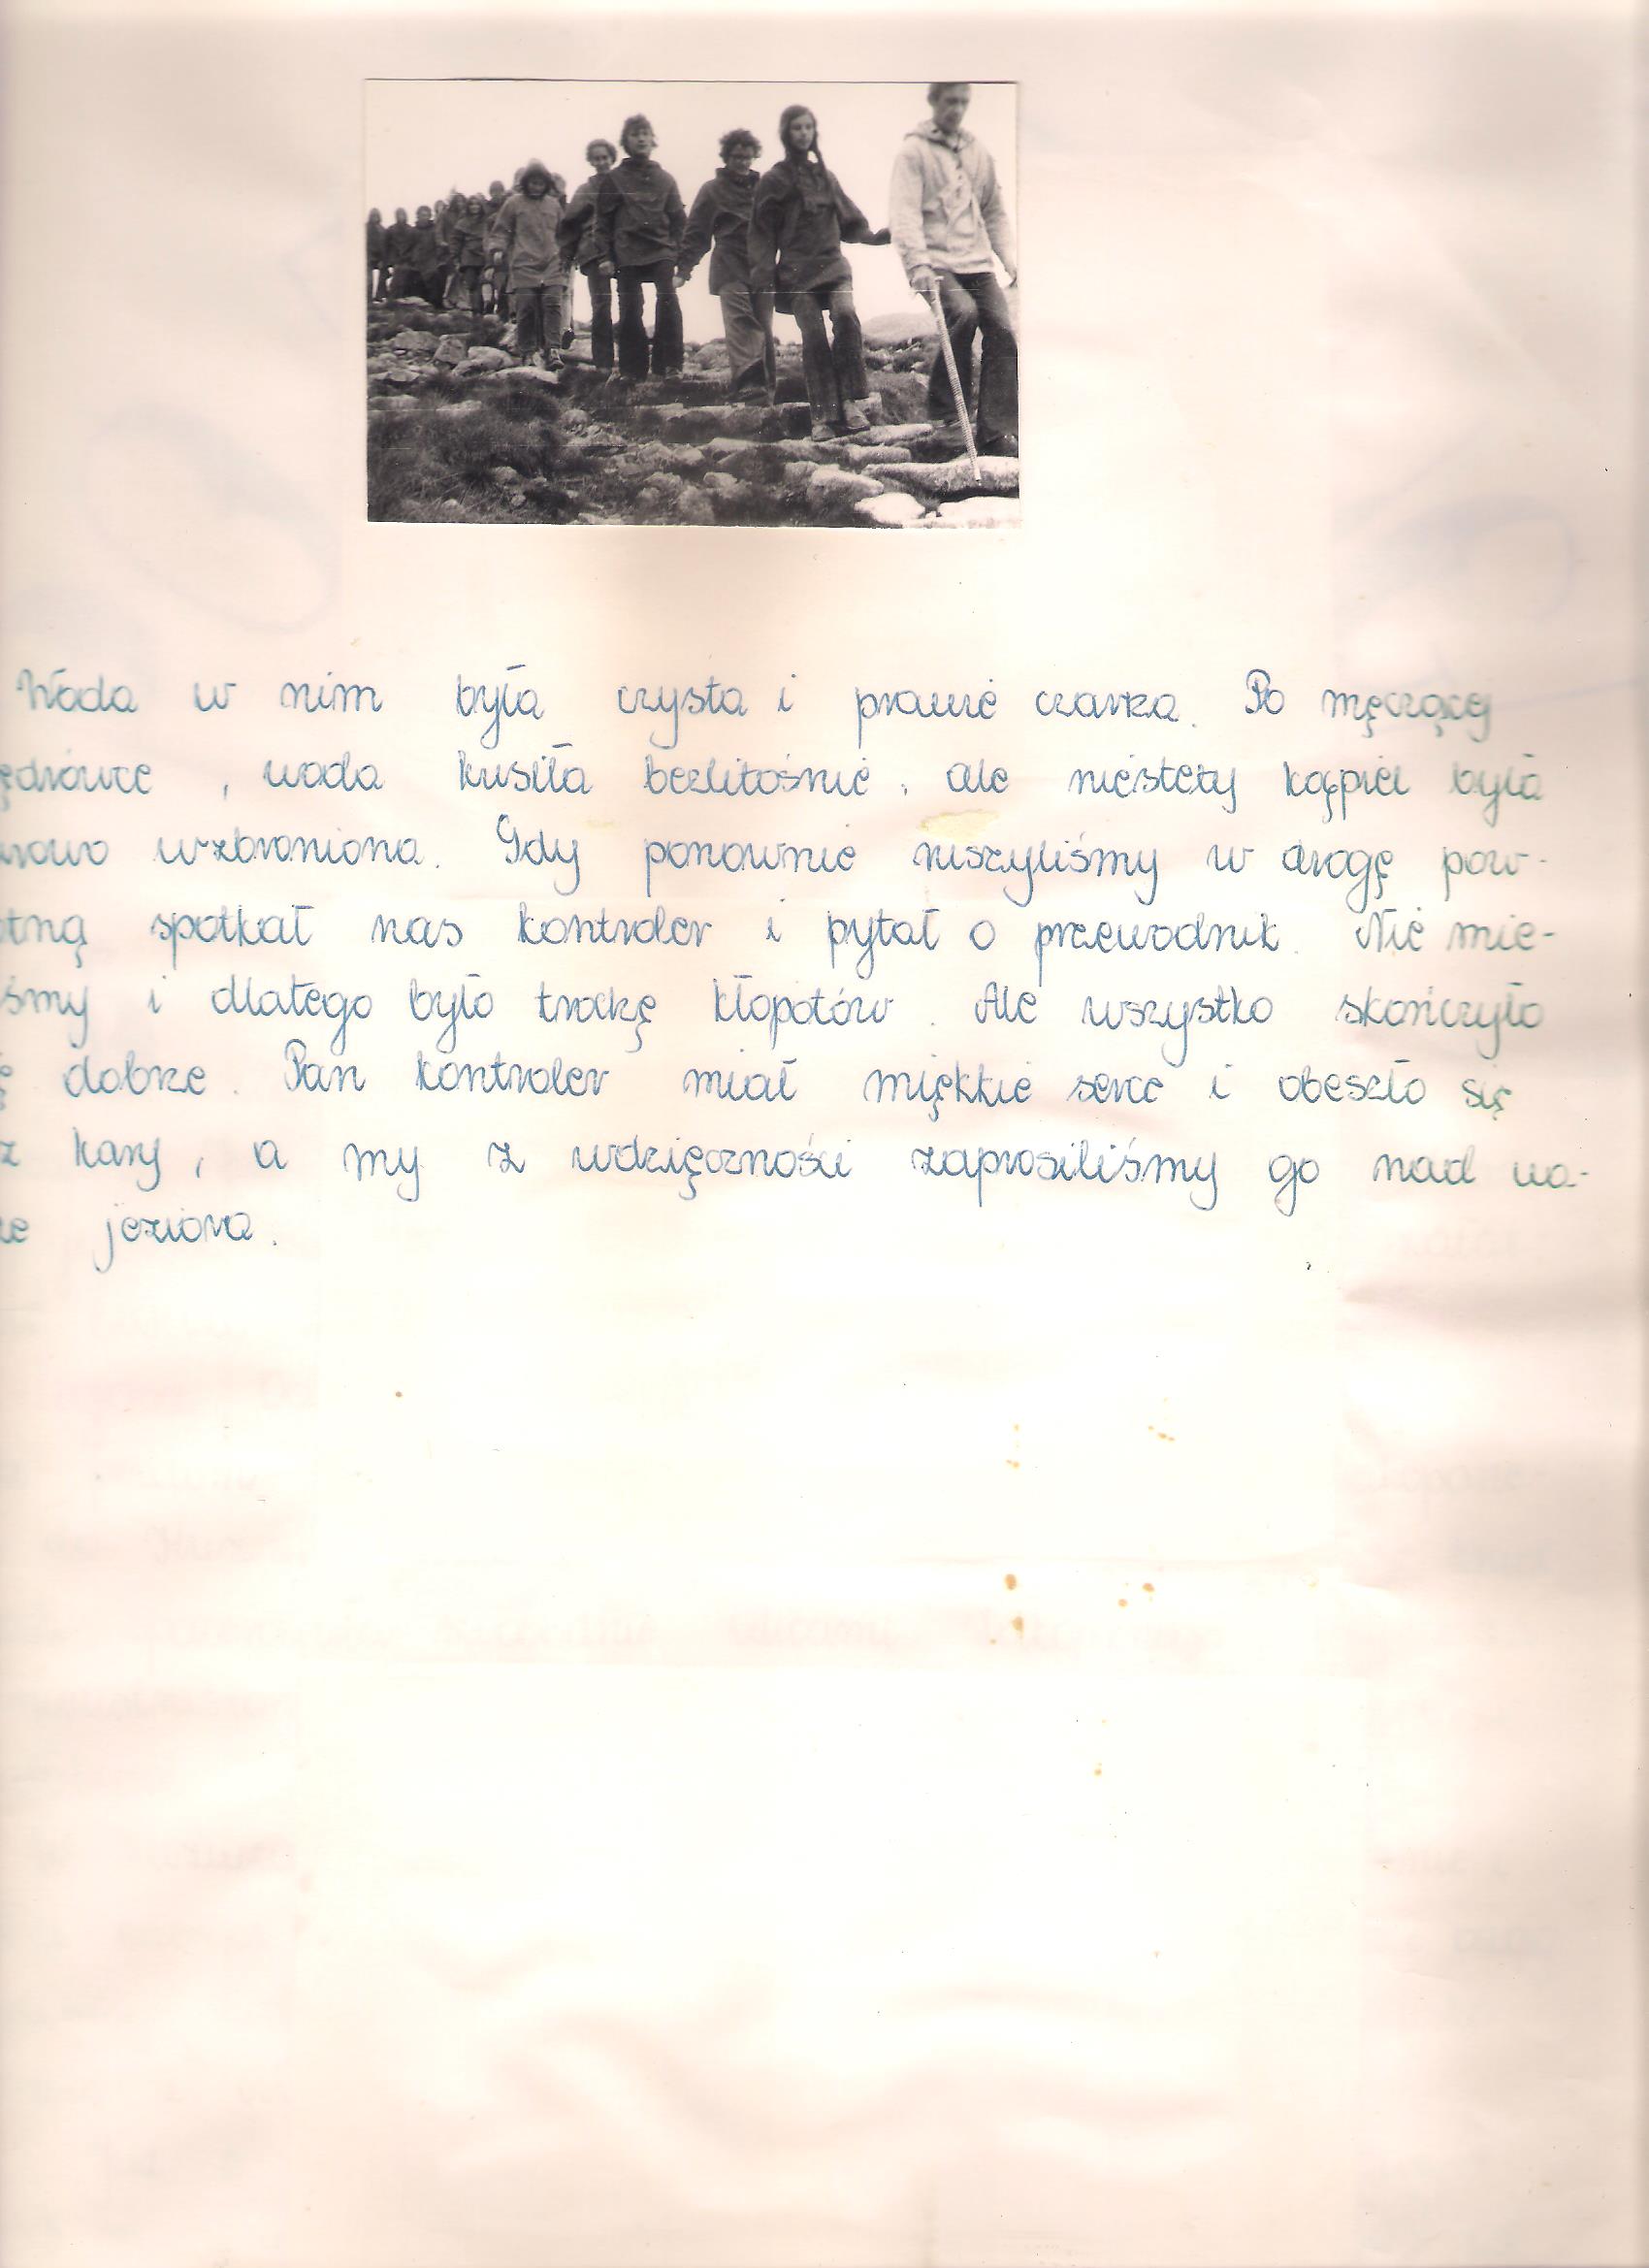 Woda w nim była czysta i prawie czarna. Po męczącej
ędrówce, woda kusiła bezlitośnie, ale niestety kąpiel była
urowo wzbroniona. Gdy ponownie ruszyliśmy w drogę pow-
otną spotkał nas kontroler i pytał o przewodnik. Nie mie-
śmy i dlatego było trochę kłopotów. Ale wszystko skończyło
ę dobrze. Pan kontroler miał miękkie serce i obeszło się
z kary, a my z wdzięczności zaprosiliśmy go nad na-
ze jeziora.